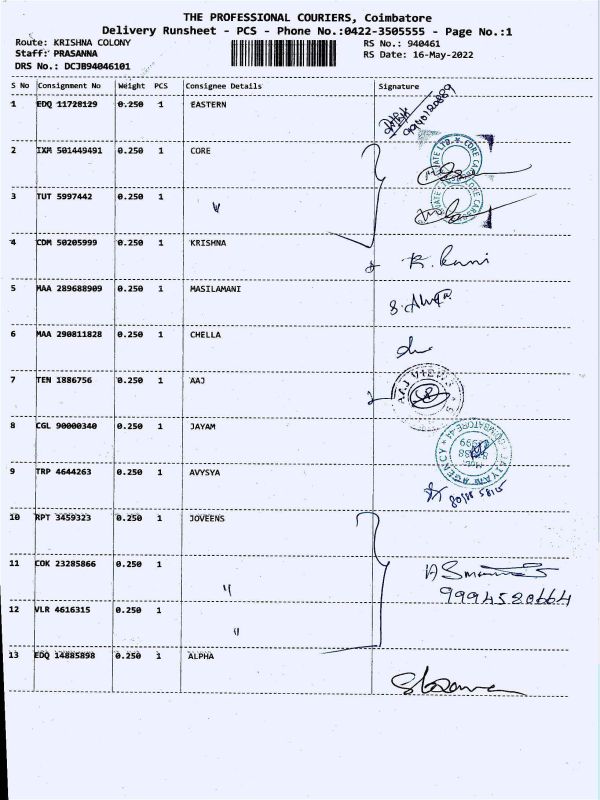 THE PROFESSIONAL COURIERS, Coimbatore
Delivery Runsheet - PCS - Phone No.:0422-3505555 - Page No.:1
Route: KRISHNA COLONY
RS No.: 940461
Staff: PRASANNA
RS Date: 16-May-2022
DRS No.: DCJB94046101
S No Consignment No Weight PCS Consignee Details Signature
1 EDQ 11728129 0.250 1 EASTERN
2 IXM 501449491 0.250 1 CORE
3 TUT 5997442 0.250 1 "
4 CDM 50205999 0.250 1 KRISHNA R. Rani
5 MAA 289688909 0.250 1 MASILAMANI
6 MAA 290811828 0.250 1 CHELLA
7 TEN 1886756 0.250 1 AAJ
8 CGL 90000340 0.250 1 JAYAM
9 TRP 4644263 0.250 1 AVYSYA
10 RPT 3459323 0.250 1 JOVEENS
11 COK 23285866 0.250 1 "
9994520664
12 VLR 4616315 0.250 1 "
13 EDQ 14885898 0.250 1 ALPHA